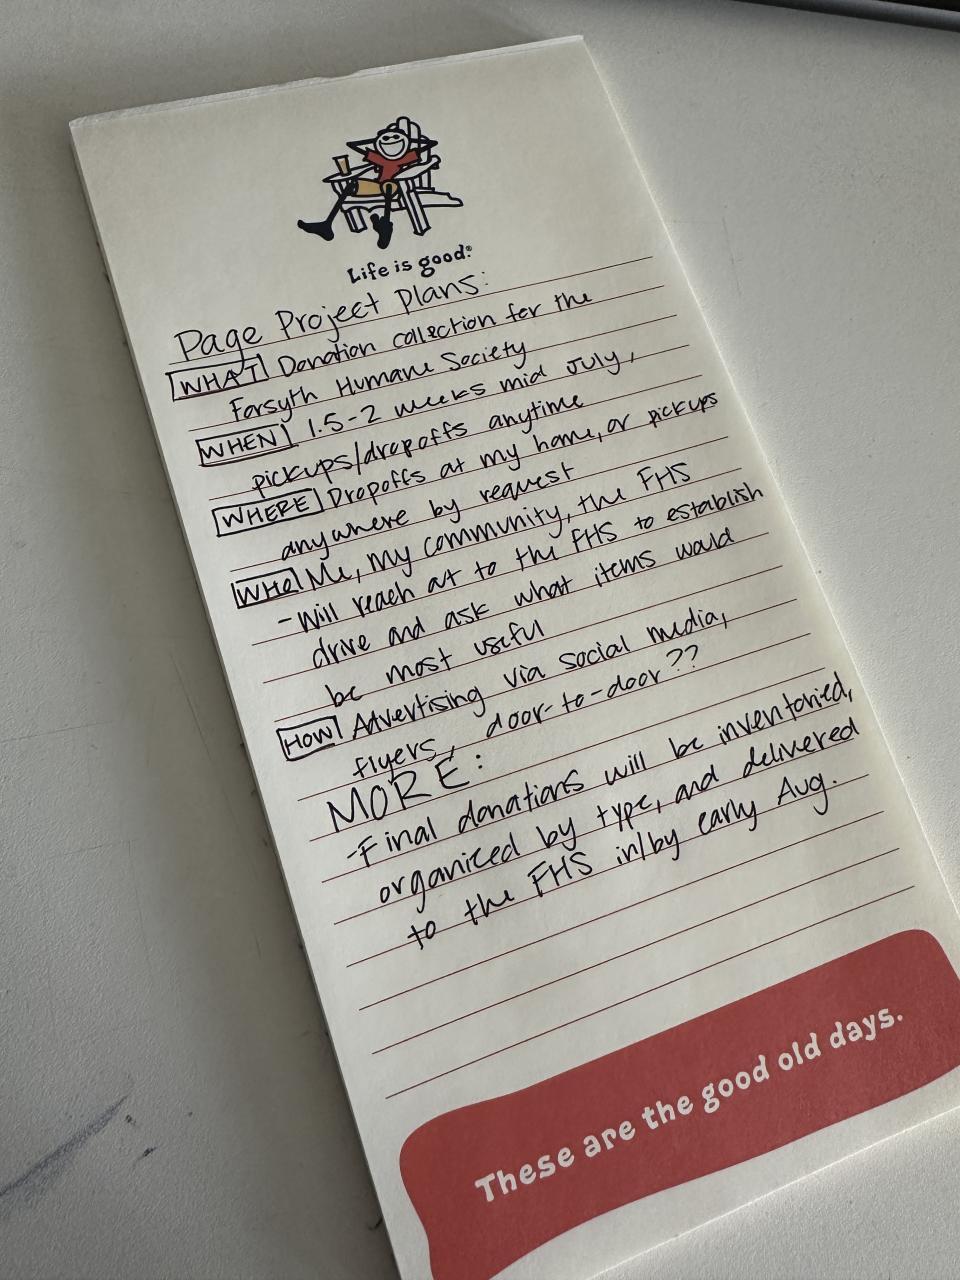 Life is good.®
Page Project Plans:
WHAT Donation collection for the
Forsyth Humane Society
WHEN 1.5-2 weeks mid July,
pickups/dropoffs anytime
WHERE Dropoffs at my home, or pickups
anywhere by request
WHO Me, my community, the FHS
-Will reach out to the FHS to establish
drive and ask what items would
be most useful
HOW Advertising via social media,
flyers, door-to-door??
MORE:
-Final donations will be inventoried,
organized by type, and delivered
to the FHS in/by early Aug.
These are the good old days.